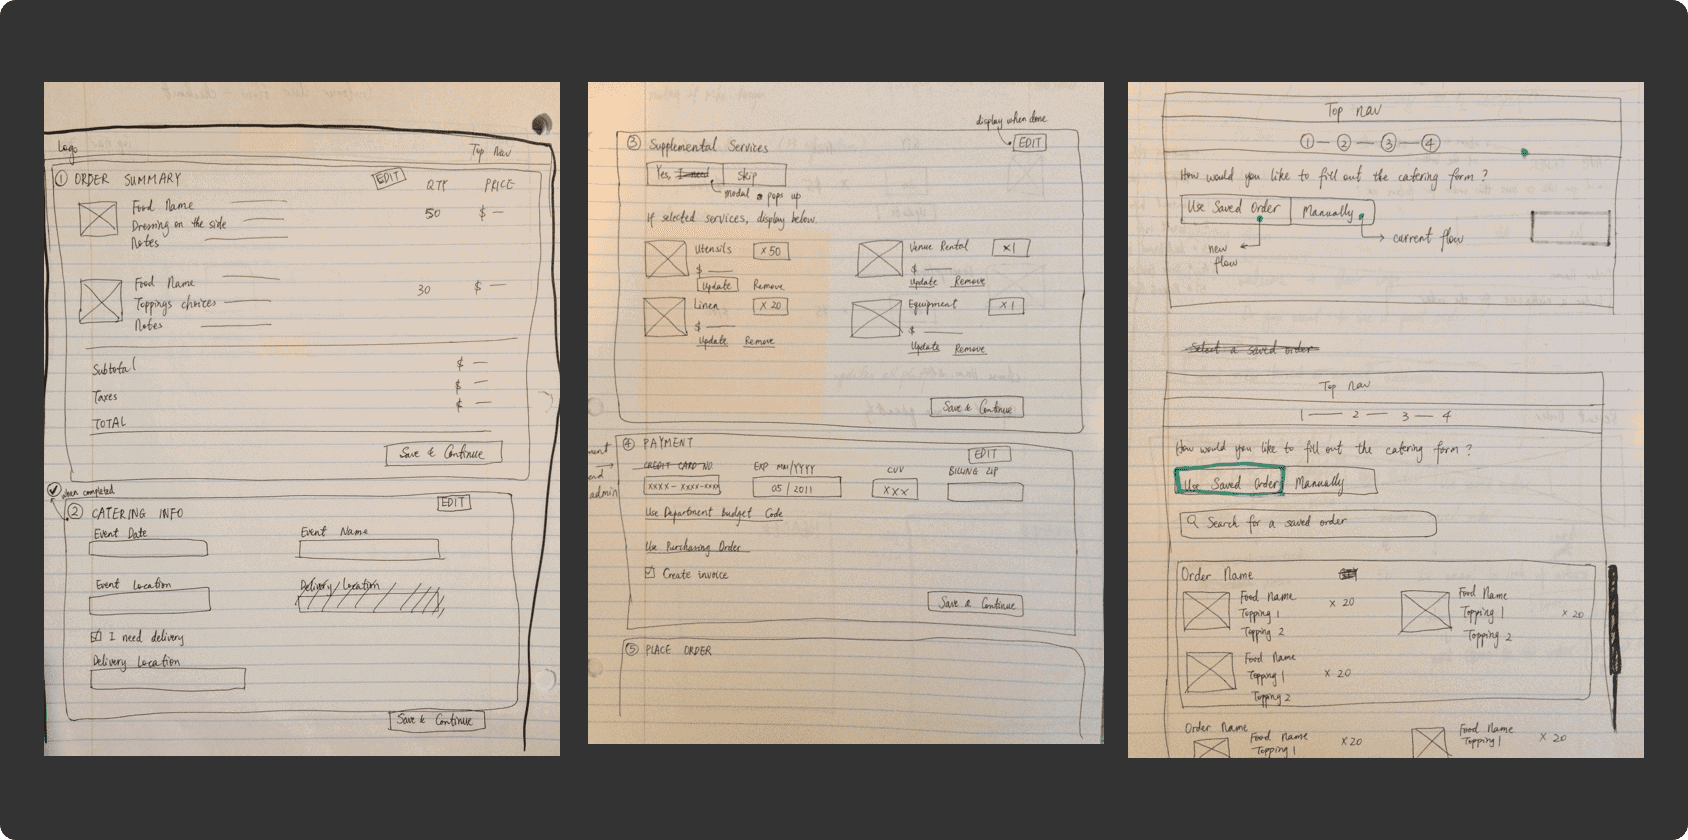 Logo
Top Nav
① ORDER SUMMARY
EDIT
QTY
PRICE
Food Name
Dressing on the side
Notes
50
$ —
Food Name
Toppings choices
Notes
30
$ —
Subtotal
$ —
Taxes
$ —
TOTAL
$ —
Save & Continue
when completed
② CATERING INFO
EDIT
Event Date
Event Name
Event Location
Delivery Location
I need delivery
Delivery Location
Save & Continue
display when done
③ Supplemental Services
EDIT
Yes, I need
Skip
modal pops up
If selected services, display below.
Utensils
x 50
$
Update Remove
Venue Rental
x 1
$
Update Remove
Linen
x 20
$
Update Remove
Equipment
x 1
$
Update Remove
Save & Continue
④ PAYMENT
EDIT
admin
CREDIT CARD NO
EXP MM/YYYY
CVV
BILLING ZIP
xxxx - xxxx - xxxx
05 / 2011
XXX
Use Department budget Code
Use Purchasing Order
Create invoice
Save & Continue
⑤ PLACE ORDER
Top nav
① — ② — ③ — ④
How would you like to fill out the catering form ?
Use Saved Order
Manually
new flow
current flow
Select a saved order
Top nav
1 — 2 — 3 — 4
How would you like to fill out the catering form ?
Use Saved Order
Manually
Search for a saved order
Order Name
Food Name
Topping 1
Topping 2
x 20
Food Name
Topping 1
Topping 2
x 20
Food Name
Topping 1
Topping 2
x 20
Order Name
Food Name
Topping 1
x 20
Food Name
Topping 1
x 20